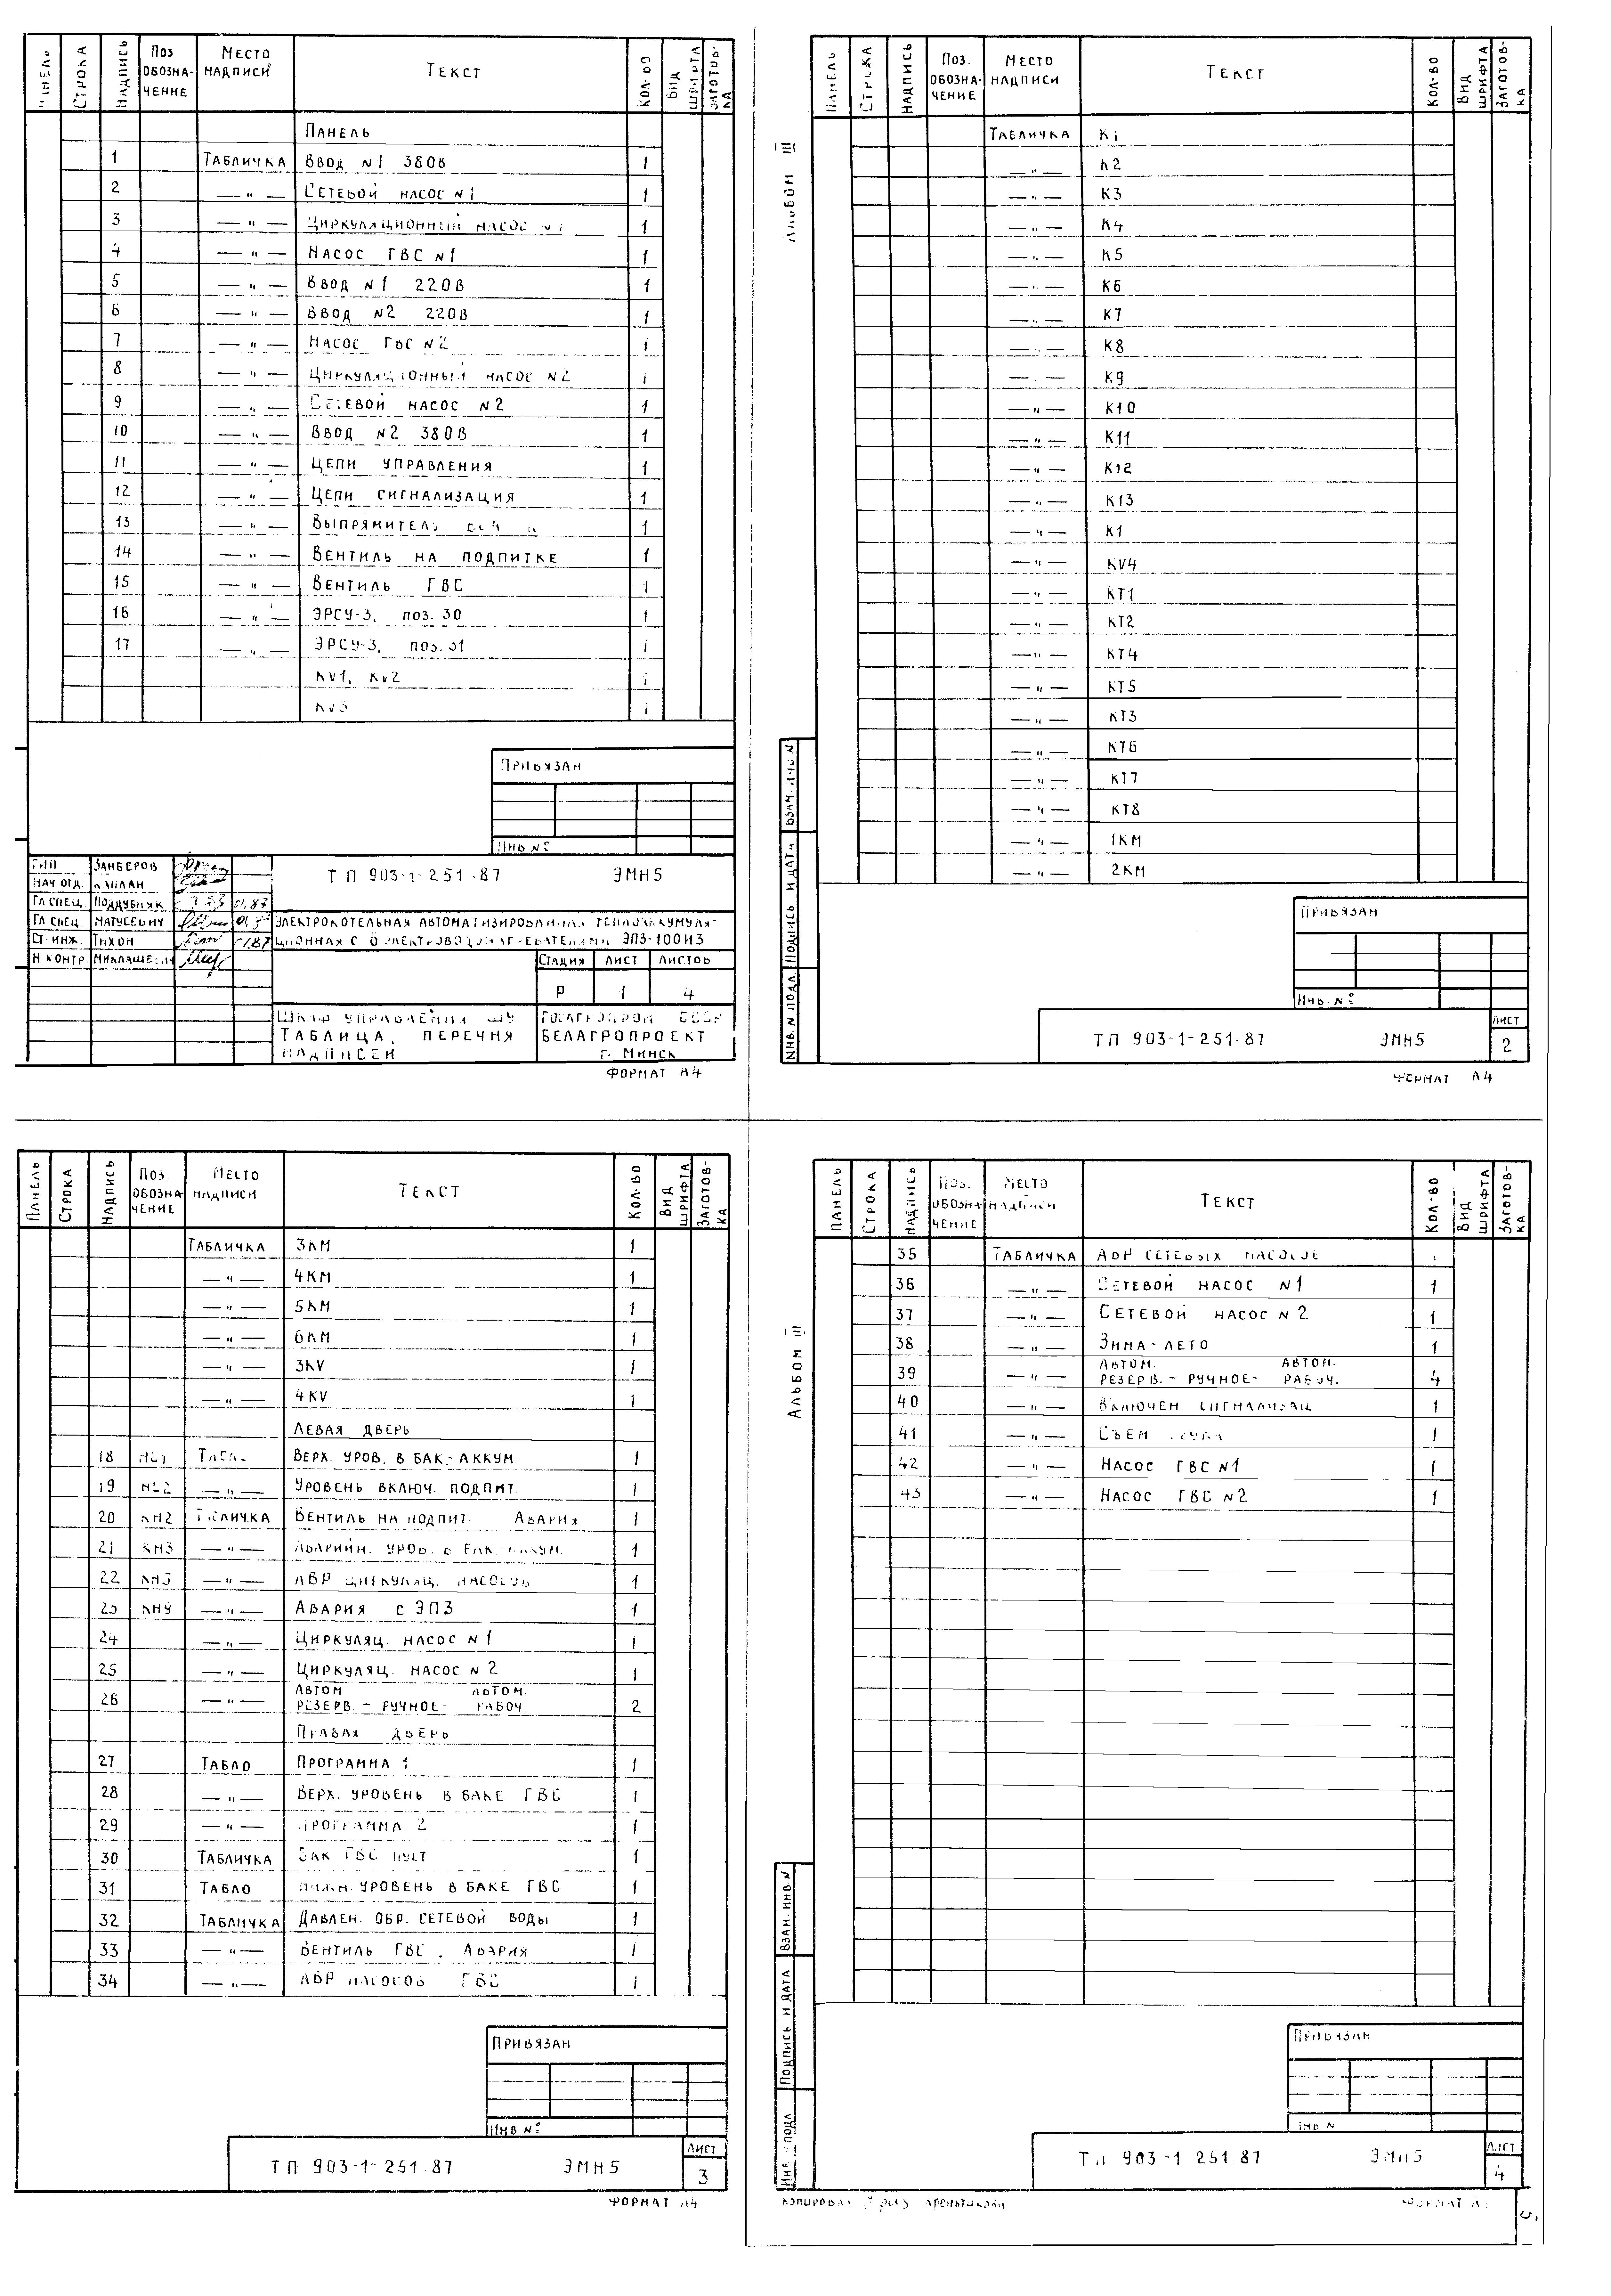 Панель Строка Надпись Поз. обозначение Место надписи Текст Кол-во Вид шрифта Заготовка
Панель
1 Табличка Ввод №1 380В 1
2 — " — Сетевой насос №1 1
3 — " — Циркуляционный насос №1 1
4 — " — Насос ГВС №1 1
5 — " — Ввод №1 220В 1
6 — " — Ввод №2 220В 1
7 — " — Насос ГВС №2 1
8 — " — Циркуляционный насос №2 1
9 — " — Сетевой насос №2 1
10 — " — Ввод №2 380В 1
11 — " — Цепи управления 1
12 — " — Цепи сигнализация 1
13 — " — Выпрямитель 1
14 — " — Вентиль на подпитке 1
15 — " — Вентиль ГВС 1
16 — " — ЭРСУ-3, поз. 30 1
17 — " — ЭРСУ-3, поз. 31 1
KV1, KV2 1
KV3 1
Привязан
Инв №
ГИП Занберов
Нач отд. Каплан
Гл спец. Поддубняк
Гл спец. Матусевич
Ст. инж. Тихон
Н. контр.
ТП 903-1-251.87 ЭМН5
Электрокотельная автоматизированная теплоаккумуля-
ционная с 6 электроводонагревателями ЭПЗ-100И3
Стадия Лист Листов
Р 1 4
Шкаф управления ШУ
Таблица перечня
надписей
Госагропром БССР
Белагропроект
г. Минск
Формат А4
Альбом III
Панель Строка Надпись Поз. обозначение Место надписи Текст Кол-во Вид шрифта Заготовка
Табличка К1
— " — К2
— " — К3
— " — К4
— " — К5
— " — К6
— " — К7
— " — К8
— " — К9
— " — К10
— " — К11
— " — К12
— " — К13
— " — К1
— " — KV4
— " — КТ1
— " — КТ2
— " — КТ4
— " — КТ5
— " — КТ3
— " — КТ6
— " — КТ7
— " — КТ8
— " — 1КМ
— " — 2КМ
Инв. № подл. Подпись и дата Взам. инв. №
Привязан
Инв. №
ТП 903-1-251.87 ЭМН5
Лист
2
Формат А4
Панель Строка Надпись Поз. обозначение Место надписи Текст Кол-во Вид шрифта Заготовка
Табличка 3КМ 1
— " — 4КМ 1
— " — 5КМ 1
— " — 6КМ 1
— " — 3KV 1
— " — 4KV 1
Левая дверь
18 HL1 Табло Верх. уров. в бак.-аккум. 1
19 HL2 — " — Уровень включ. подпит 1
20 КН2 Табличка Вентиль на подпит. Авария 1
21 КН3 — " — Аварийн. уров. в бак-аккум. 1
22 КН5 — " — АВР циркуляц. насосов 1
23 КН9 — " — Авария с ЭПЗ 1
24 — " — Циркуляц. насос №1 1
25 — " — Циркуляц. насос №2 1
26 — " — Автом Автом.
резерв. - ручное- рабоч 2
Правая дверь
27 Табло Программа 1 1
28 — " — Верх. уровень в баке ГВС 1
29 — " — Программа 2 1
30 Табличка Бак ГВС пуст 1
31 Табло Нижн. уровень в баке ГВС 1
32 Табличка Давлен. обр. сетевой воды 1
33 — " — Вентиль ГВС. Авария 1
34 — " — АВР насосов ГВС 1
Привязан
Инв №
ТП 903-1-251.87 ЭМН5
Лист
3
Формат А4
Альбом III
Панель Строка Надпись Поз. обозначение Место надписи Текст Кол-во Вид шрифта Заготовка
35 Табличка АВР сетевых насосов
36 — " — Сетевой насос №1 1
37 — " — Сетевой насос №2 1
38 — " — Зима-лето 1
39 — " — Автом. Автом.
резерв. - ручное- рабоч. 4
40 — " — Включен. сигнализац 1
41 — " — Съем звука 1
42 — " — Насос ГВС №1 1
43 — " — Насос ГВС №2 1
Инв. подл Подпись и дата Взам. инв. №
Привязан
Инв №
ТП 903-1 251.87 ЭМН5
Лист
4
Копировал
Формат А4